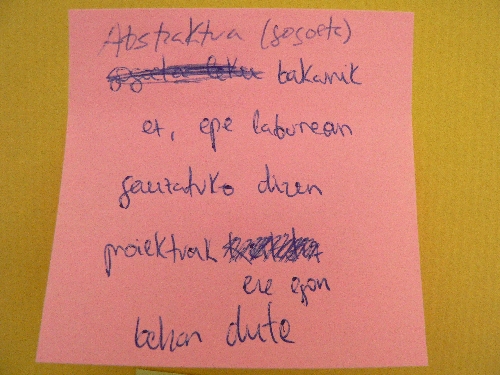 Abstraktua (gogoeta)
bakarrik
ez, epe laburrean
gauzatuko diren
proiektuak
ere egon
behar dute